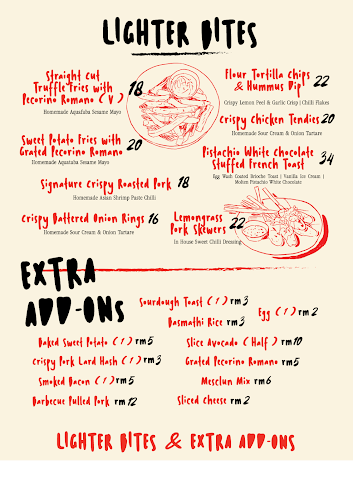 LIGHTER BITES
Straight Cut
Truffle Fries with
Pecorino Romano ( V ) 18
Homemade Aquafaba Sesame Mayo
Sweet Potato Fries with
Grated Pecorino Romano 20
Homemade Aquafaba Sesame Mayo
Flour Tortilla Chips
& Hummus Dip 22
Crispy Lemon Peel & Garlic Crisp | Chilli Flakes
Crispy Chicken Tendies 20
Homemade Sour Cream & Onion Tartare
Pistachio White Chocolate
Stuffed French Toast 34
Egg Wash Coated Brioche Toast | Vanilla Ice Cream |
Molten Pistachio White Chocolate
Signature Crispy Roasted Pork 18
Homemade Asian Shrimp Paste Chilli
Crispy Battered Onion Rings 16
Homemade Sour Cream & Onion Tartare
Lemongrass
Pork Skewers 22
In House Sweet Chili Dressing
EXTRA
ADD-ONS
Sourdough Toast ( 1 ) rm3
Basmathi Rice rm3
Egg ( 1 ) rm2
Baked Sweet Potato ( 1 ) rm5
Crispy Pork Lard Hash ( 1 ) rm3
Smoked Bacon ( 1 ) rm5
Barbecue Pulled Pork rm12
Slice Avocado ( Half ) rm10
Grated Pecorino Romano rm5
Mesclun Mix rm6
Sliced Cheese rm2
LIGHTER BITES & EXTRA ADD-ONS